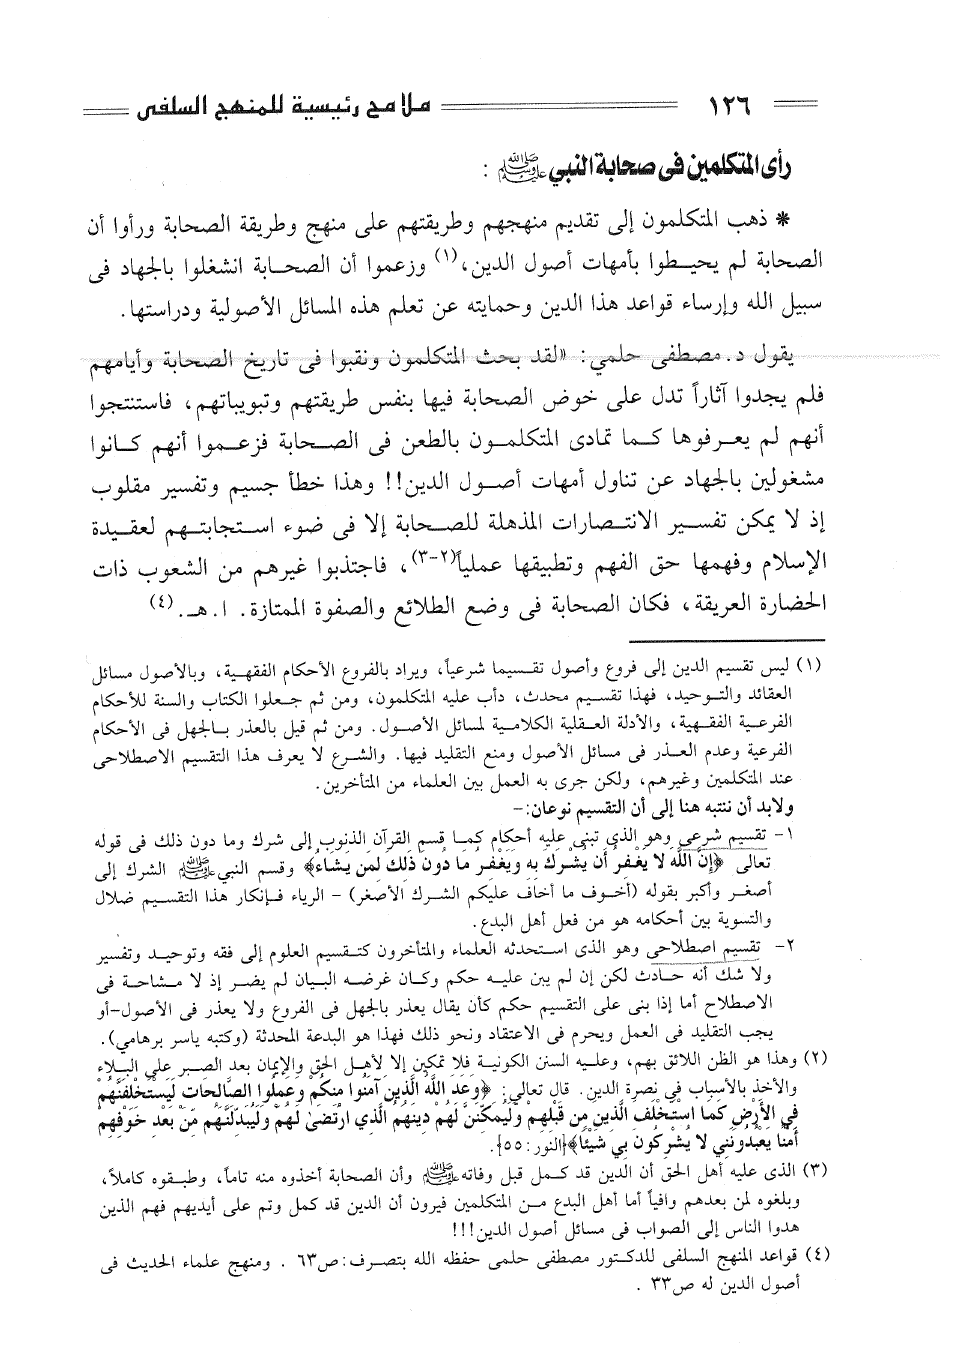 ١٢٦ ملامح رئيسية للمنهج السلفى
رأى المتكلمين فى صحابة النبي ﷺ :
* ذهب المتكلمون إلى تقديم منهجهم وطريقتهم على منهج وطريقة الصحابة ورأوا أن
الصحابة لم يحيطوا بأمهات أصول الدين،(١) وزعموا أن الصحابة انشغلوا بالجهاد فى
سبيل الله وإرساء قواعد هذا الدين وحمايته عن تعلم هذه المسائل الأصولية ودراستها.
يقول د. مصطفى حلمي: «لقد بحث المتكلمون ونقبوا فى تاريخ الصحابة وأيامهم
فلم يجدوا آثاراً تدل على خوض الصحابة فيها بنفس طريقتهم وتبويباتهم، فاستنتجوا
أنهم لم يعرفوها كما تمادى المتكلمون بالطعن فى الصحابة فزعموا أنهم كانوا
مشغولين بالجهاد عن تناول أمهات أصول الدين!! وهذا خطأ جسيم وتفسير مقلوب
إذ لا يمكن تفسير الانتصارات المذهلة للصحابة إلا فى ضوء استجابتهم لعقيدة
الإسلام وفهمها حق الفهم وتطبيقها عملياً(٢-٣)، فاجتذبوا غيرهم من الشعوب ذات
الحضارة العريقة، فكان الصحابة فى وضع الطلائع والصفوة الممتازة. ا.هـ.(٤)
(١) ليس تقسيم الدين إلى فروع وأصول تقسيما شرعياً، ويراد بالفروع الأحكام الفقهية، وبالأصول مسائل
العقائد والتوحيد، فهذا تقسيم محدث، دأب عليه المتكلمون، ومن ثم جعلوا الكتاب والسنة للأحكام
الفرعية الفقهية، والأدلة العقلية الكلامية لمسائل الأصول. ومن ثم قيل بالعذر بالجهل فى الأحكام
الفرعية وعدم العذر فى مسائل الأصول ومنع التقليد فيها. والشرع لا يعرف هذا التقسيم الاصطلاحى
عند المتكلمين وغيرهم، ولكن جرى به العمل بين العلماء من المتأخرين.
ولابد أن ننتبه هنا إلى أن التقسيم نوعان:-
١- تقسيم شرعى وهو الذى تبنى عليه أحكام كما قسم القرآن الذنوب إلى شرك وما دون ذلك فى قوله
تعالى ﴿إِنَّ اللَّهَ لا يَغْفِرُ أَن يُشْرَكَ بِهِ وَيَغْفِرُ مَا دُونَ ذَلِكَ لِمَن يَشَاءُ﴾ وقسم النبيﷺ الشرك إلى
أصغر وأكبر بقوله (أخوف ما أخاف عليكم الشرك الأصغر) - الرياء فإنكار هذا التقسيم ضلال
والتسوية بين أحكامه هو من فعل أهل البدع.
٢- تقسيم اصطلاحى وهو الذى استحدثه العلماء والمتأخرون كتقسيم العلوم إلى فقه وتوحيد وتفسير
ولا شك أنه حادث لكن إن لم يبن عليه حكم وكان غرضه البيان لم يضر إذ لا مشاحة فى
الاصطلاح أما إذا بنى على التقسيم حكم كأن يقال يعذر بالجهل فى الفروع ولا يعذر فى الأصول-أو
يجب التقليد فى العمل ويحرم فى الاعتقاد ونحو ذلك فهذا هو البدعة المحدثة (وكتبه ياسر برهامي).
(٢) وهذا هو الظن اللائق بهم، وعليه السنن الكونية فلا تمكين إلا لأهل الحق والإيمان بعد الصبر على البلاء
والأخذ بالأسباب في نصرة الدين. قال تعالى: ﴿وَعَدَ اللَّهُ الَّذِينَ آمَنُوا مِنكُمْ وَعَمِلُوا الصَّالِحَاتِ لَيَسْتَخْلِفَنَّهُمْ
فِي الأَرْضِ كَمَا اسْتَخْلَفَ الَّذِينَ مِن قَبْلِهِمْ وَلَيُمَكِّنَنَّ لَهُمْ دِينَهُمُ الَّذِي ارْتَضَىٰ لَهُمْ وَلَيُبَدِّلَنَّهُم مِّنْ بَعْدِ خَوْفِهِمْ
أَمْنًا يَعْبُدُونَنِي لا يُشْرِكُونَ بِي شَيْئًا﴾{النور:٥٥}.
(٣) الذى عليه أهل الحق أن الدين قد كمل قبل وفاتهﷺ وأن الصحابة أخذوه منه تاماً، وطبقوه كاملاً،
وبلغوه لمن بعدهم وافياً أما أهل البدع من المتكلمين فيرون أن الدين قد كمل وتم على أيديهم فهم الذين
هدوا الناس إلى الصواب فى مسائل أصول الدين!!!
(٤) قواعد المنهج السلفى للدكتور مصطفى حلمى حفظه الله بتصرف:ص٦٣ . ومنهج علماء الحديث فى
أصول الدين له ص٣٣ .